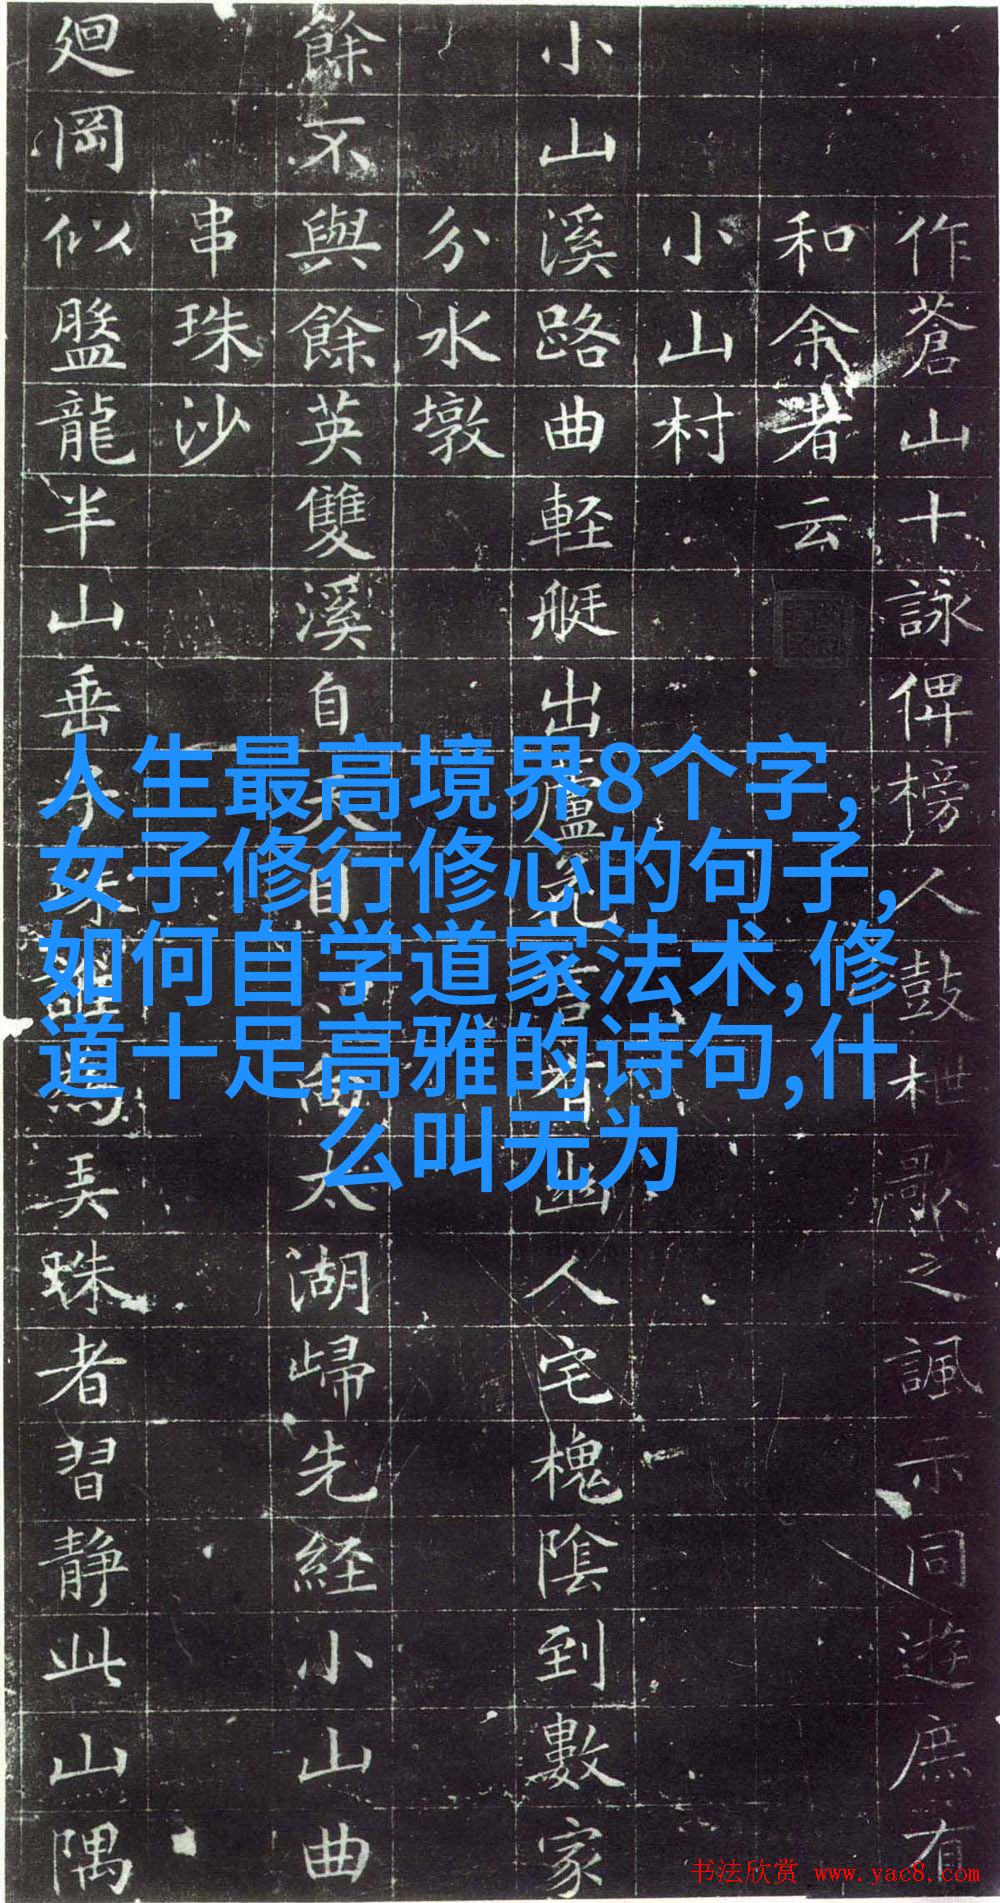 人生最高境界8个字,
女子修行修心的句子,
如何自学道家法术,修
道十足高雅的诗句,什
么叫无为
作蒼山十詠俾榜人鼓枻歌之諷示同遊庶有
和余者云
小山村
小山溪路曲軽艇出幽人宅槐陰到數家
分水墩
餘不與餘英雙溪自天目太湖歸先経小山曲
串珠沙
廻岡似盤龍半山垂弄珠者習静此山隅
书法欣赏 www.yac8.com